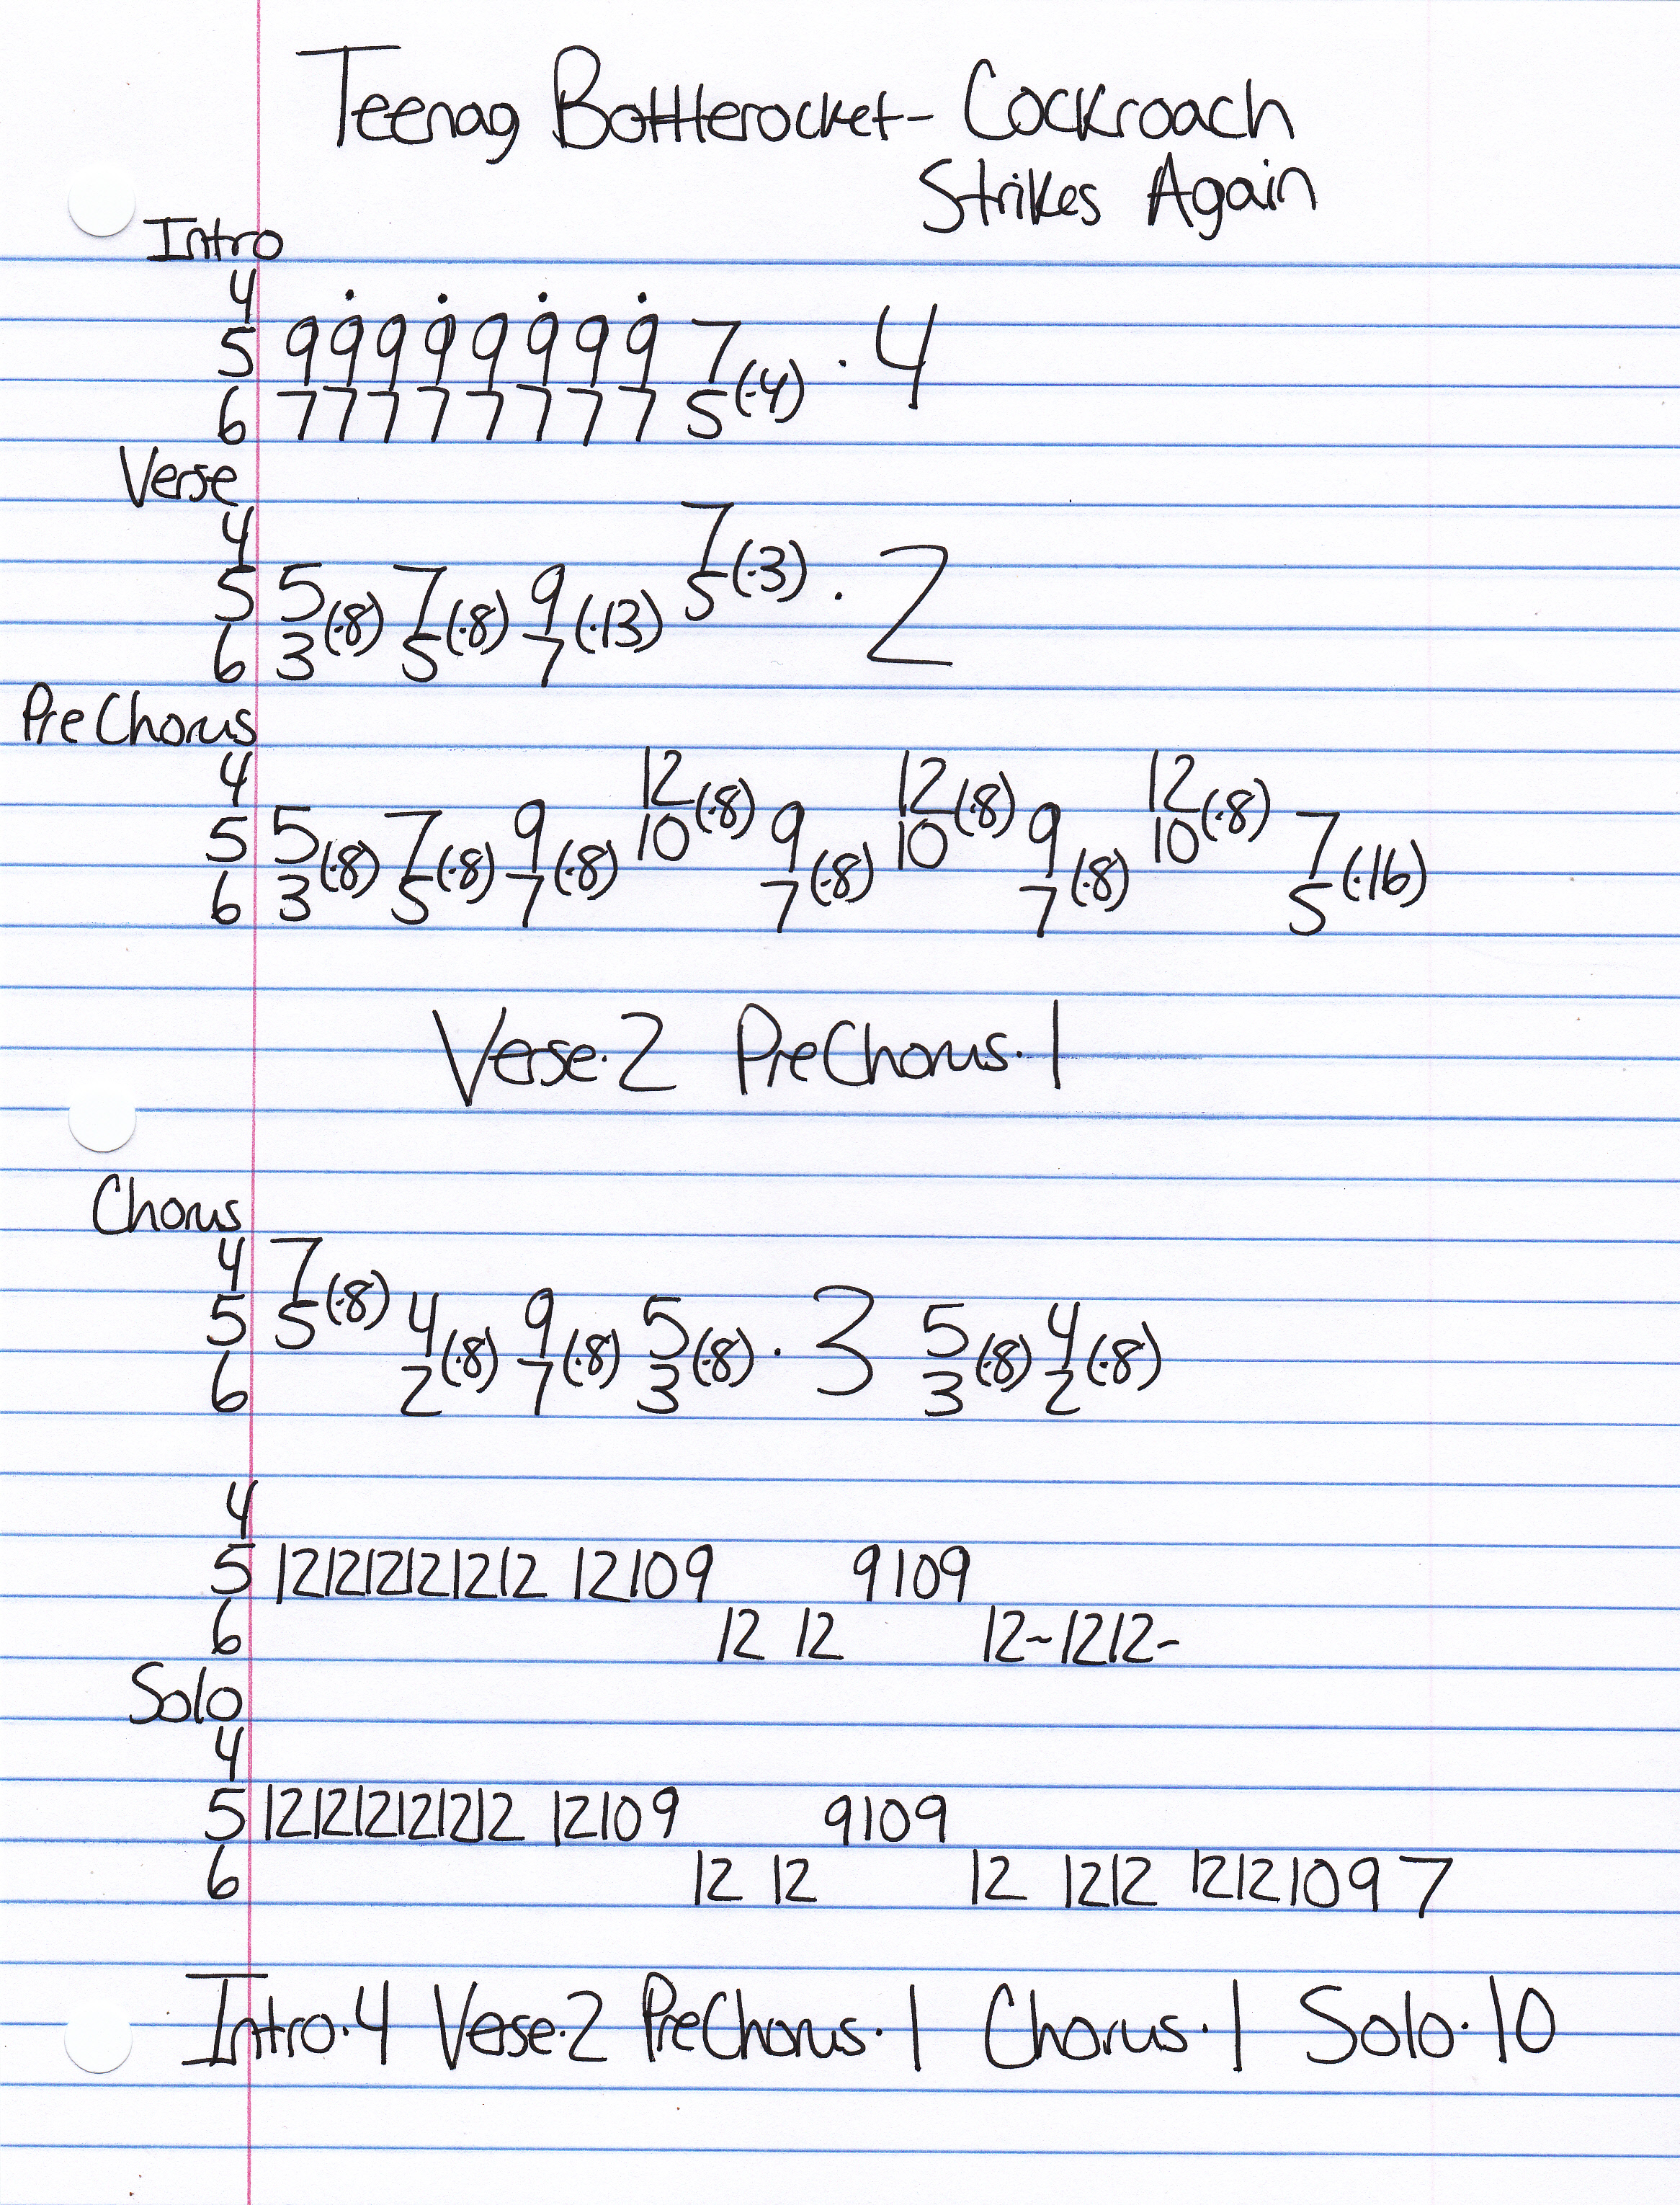 Teenag Bottlerocket- Cockroach
Strikes Again
Intro
4
5 9 9 9 9 9 9 9 9 7
6 7 7 7 7 7 7 7 7 5 (·4) · 4
Verse
4 7
5 5 7 9 5 (·3) · 2
6 3 (·8) 5 (·8) 7 (·13)
PreChorus
4 12 (·8) 12 (·8) 12 (·8)
5 5 7 9 10 9 10 9 10 7
6 3 (·8) 5 (·8) 7 (·8) 7 (·8) 7 (·8) 5 (·16)
Verse·2 PreChorus·1
Chorus
4 7
5 5 (·8) 4 9 5 · 3 5 4
6 2 (·8) 7 (·8) 3 (·8) 3 (·8) 2 (·8)
4
5 121212121212 12109 9109
6 12 12 12~1212~
Solo
4
5 121212121212 12109 9109
6 12 12 12 1212 12121097
Intro·4 Verse·2 PreChorus·1 Chorus·1 Solo·10